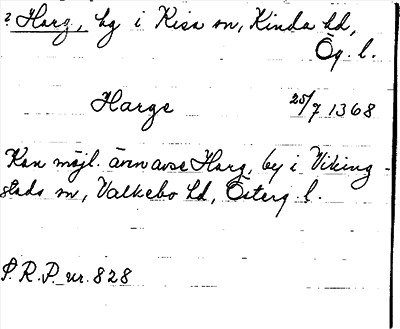 ? Harg, by i Kisa sn, Kinda hd,
Ög. l.
Harge 25/7 1368
Kan möjl. även avse Harg, by i Viking-
stads sn, Valkebo hd, Österg. l.
S.R.P. nr. 828